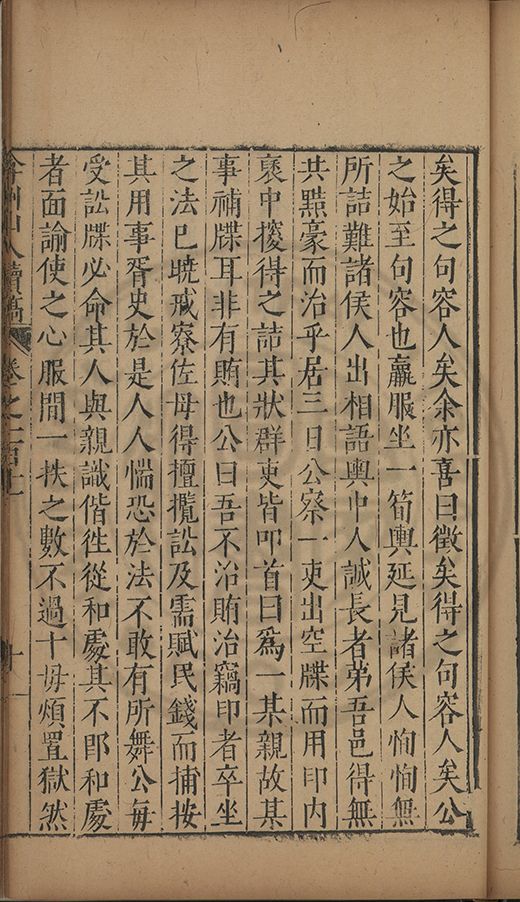 矣得之句容人矣余亦喜曰徵矣得之句容人矣公
之始至句容也羸服坐一筍輿延見諸侯人恂恂無
所詰難諸侯人出相語輿中人誠長者第吾邑得無
共黠豪而治乎居三日公察一吏出空牒而用印内
褏中搜得之詰其狀群吏皆叩首曰爲一某親故某
事補牒耳非有賄也公曰吾不治賄治竊印者卒坐
之法已曉戒寮佐毋得擅攬訟及需賦民錢而捕按
其用事胥史於是人人惴恐於法不敢有所舞公每
受訟牒必命其人與親識偕徃從和處其不卽和處
者面諭使之心服間一抶之數不過十毋煩置獄然
山人續稿 卷之一百